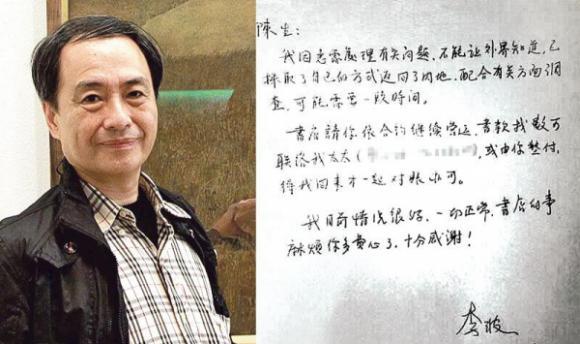 陳生:
我因急需處理有关问题,不能让外界知道,已
採取了自己的方式返回了内地,配合有关方面调
查,可能需要一段時间。
書店請你依合约继续営运,書款我數可
联络我太太( ),或由你墊付,
待我回来才一起对賬亦可。
我目前情况很好,一切正常,書店的事
麻煩你多费心了,十分感谢!
李波